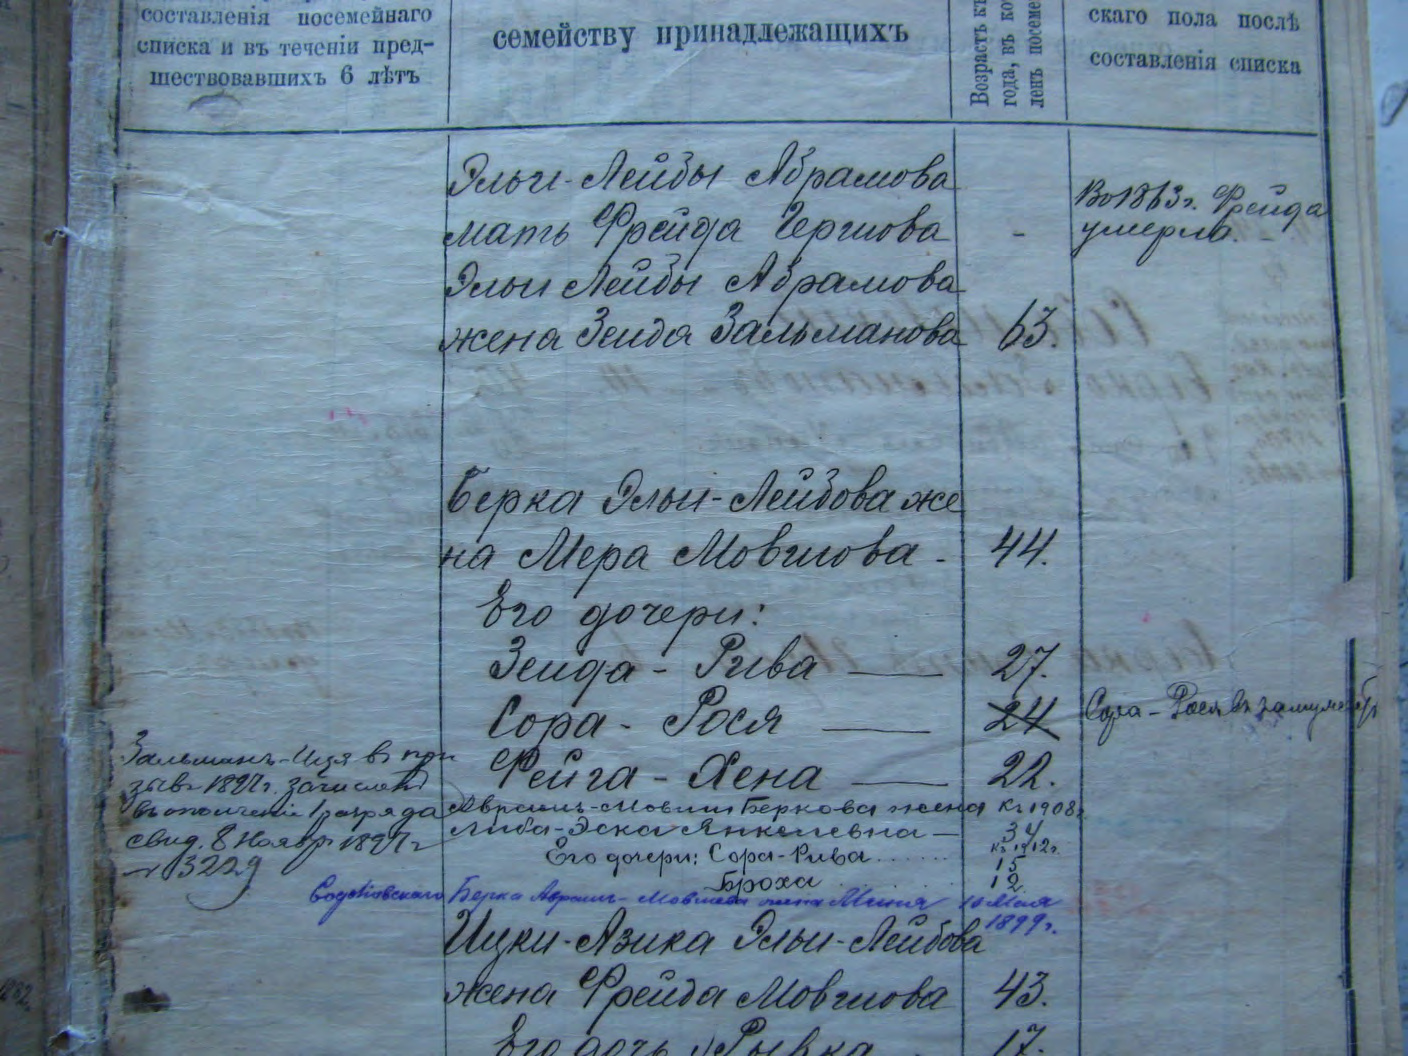 составленія посемейнаго
списка и въ теченіи пред-
шествовавшихъ 6 лѣтъ
семейству принадлежащихъ
Возрастъ къ
года, въ ко
ленъ посеме
скаго пола послѣ
составленія списка
Эльи-Лейбы Абрамова
мать Фрейда Гершова -
Во 1863 г. Фрейда
умерла.
Эльи Лейбы Абрамова
жена Зелда Зальманова 63.
Берка Эльи-Лейбова же
на Мера Мовшова - 44.
Его дочери:
Зелда - Рива — 27.
Сора - Рося — 24
Сора - Рося въ замуже
Фейга - Хена — 22.
Зальманъ-Иця въ при
зывъ 1897 г. зачисленъ
въ ополченіе 1 разряда
свид. 8 Ноябр 1897 г
№ 3229
Авраамъ-Мовши Беркова жена къ 1908 г
Либа-Эска Янкелевна — 34
къ 1912 г.
Его дочери: Сора-Рива ...... 15
Броха 12
Берка Авраамъ-Мовшева жена Минна 10 Мая
1899 г.
Ицки-Азика Эльи-Лейбова
жена Фрейда Мовшова 43.
Его дочь Рывка - 17.